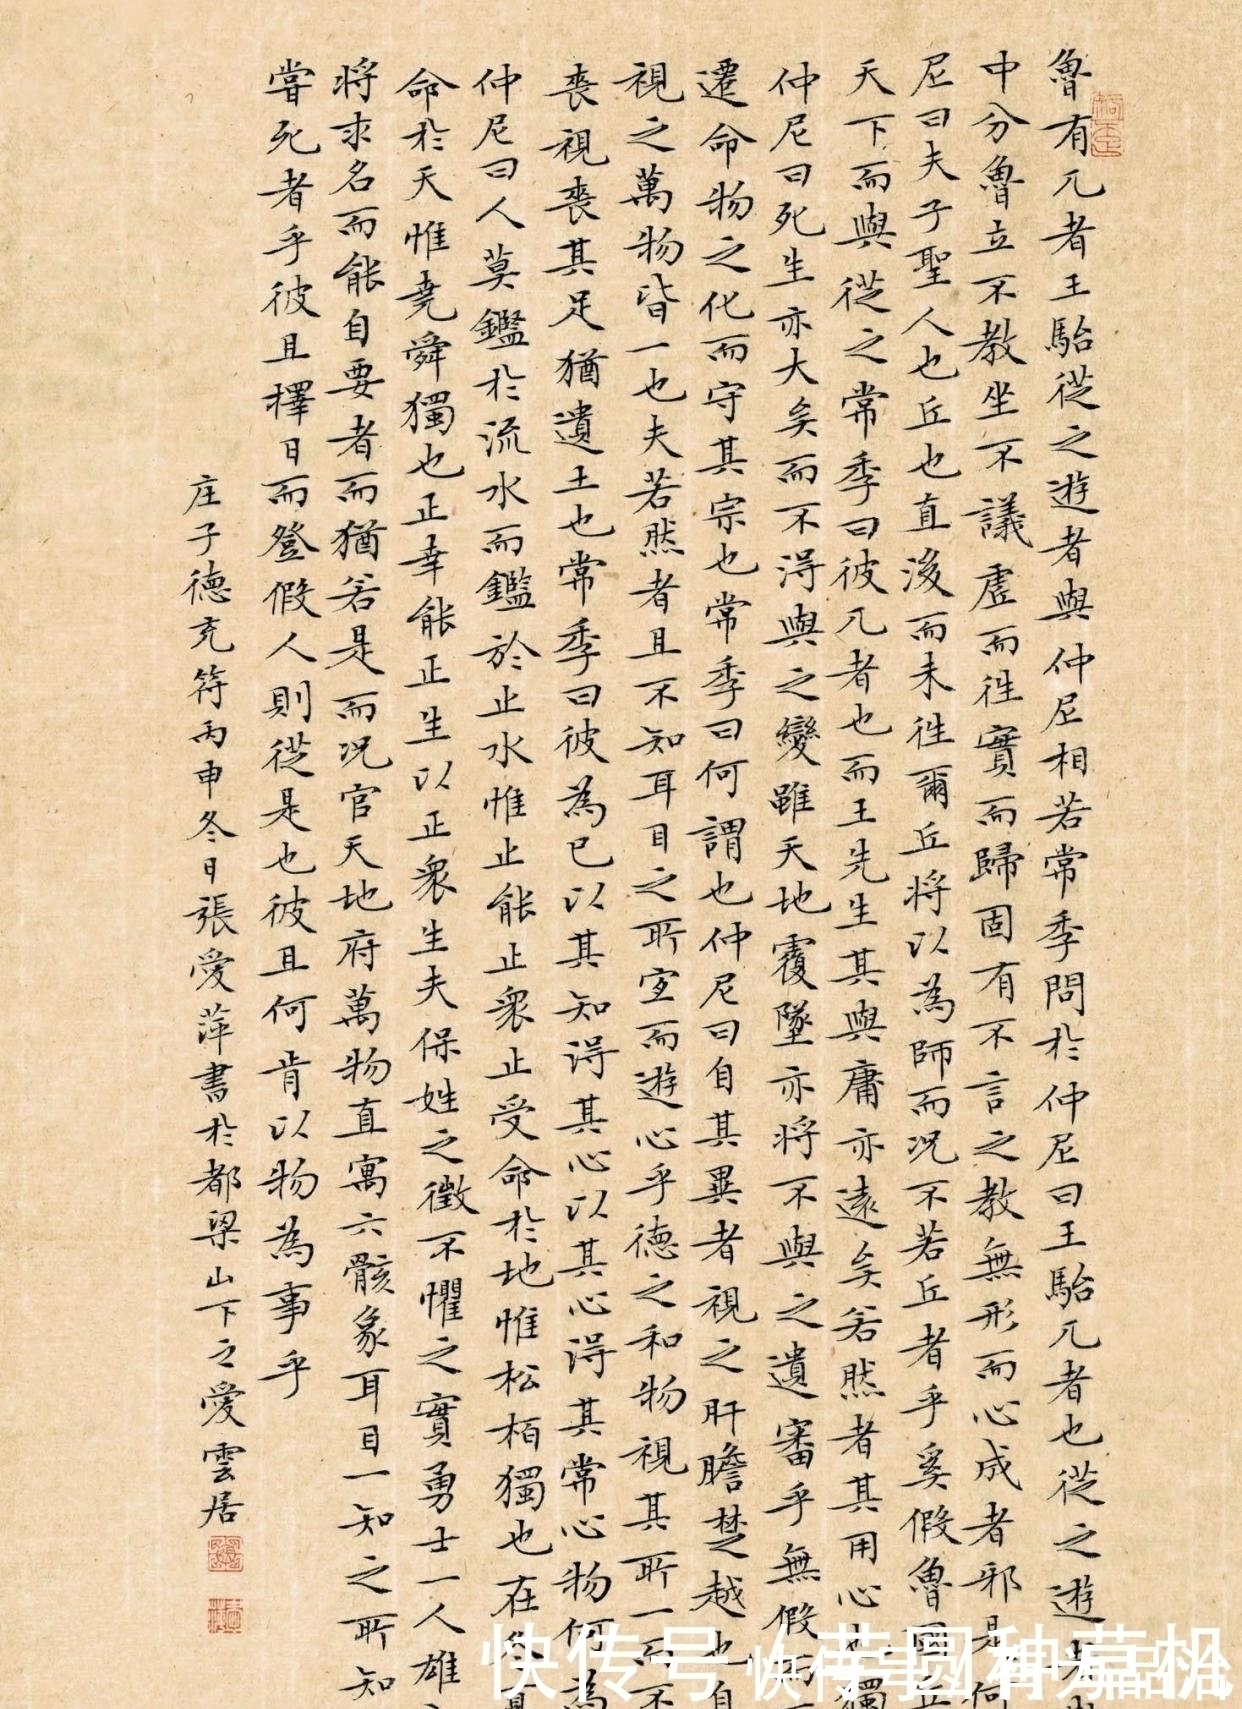 魯有兀者王駘從之遊者與仲尼相若常季問於仲尼曰王駘兀者也從之遊者與
中分魯立不教坐不議虛而往實而歸固有不言之教無形而心成者邪是何
尼曰夫子聖人也丘也直後而未往爾丘將以為師而況不若丘者乎奚假魯國丘
天下而與從之常季曰彼兀者也而王先生其與庸亦遠矣若然者其用心也獨
仲尼曰死生亦大矣而不得與之變雖天地覆墜亦將不與之遺審乎無假而
遷命物之化而守其宗也常季曰何謂也仲尼曰自其異者視之肝膽楚越也自
視之萬物皆一也夫若然者且不知耳目之所宜而遊心乎德之和物視其所一而不
喪視喪其足猶遺土也常季曰彼為己以其知得其心以其心得其常心物何為
仲尼曰人莫鑑於流水而鑑於止水惟止能止眾止受命於地惟松柏獨也在冬夏
命於天惟堯舜獨也正幸能正生以正眾生夫保始之徵不懼之實勇士一人雄
將求名而能自要者而猶若是而況官天地府萬物直寓六骸象耳目一知之所知
嘗死者乎彼且擇日而登假人則從是也彼且何肯以物為事乎
庄子德充符丙申冬日張愛萍書於都梁山下之愛雲居
快传号